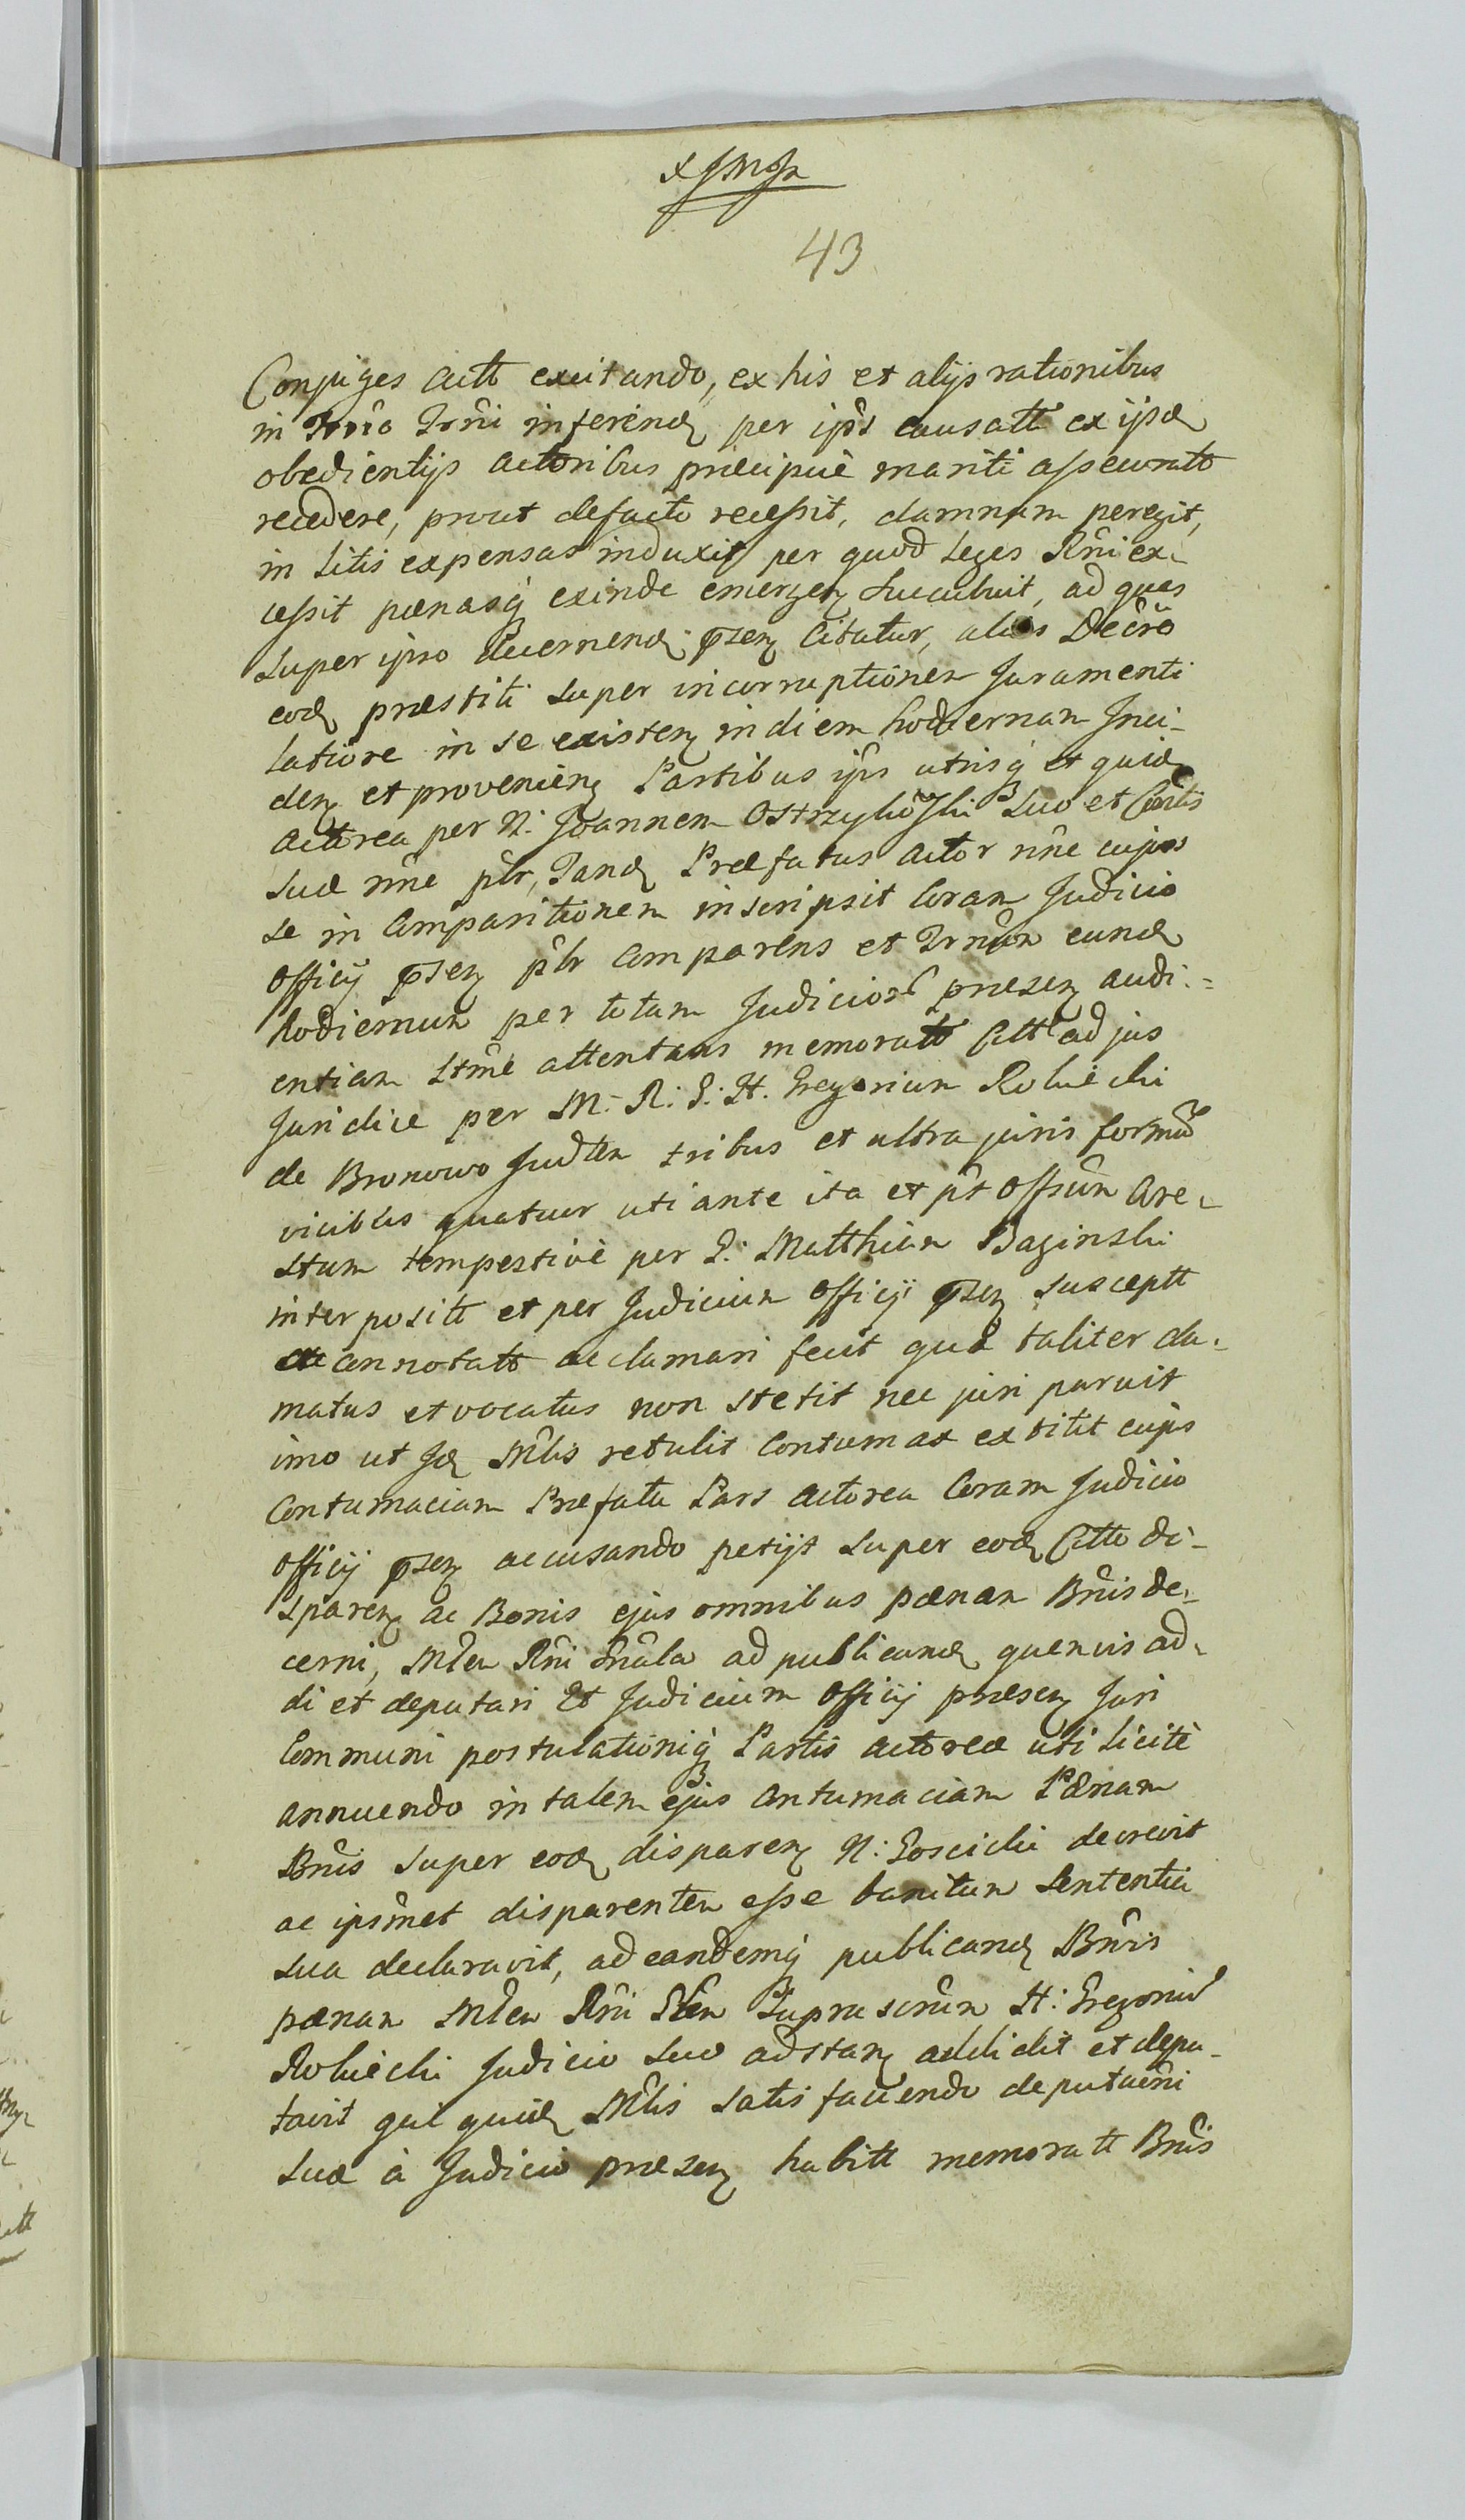 43
Conjuges actt excitando, ex his et alijs rationibus
in Trno Trni inferend per ips causatt ex ijsd
obedientijs actoribus præcipuè mariti assecuratt
recedere, prout defacto recessit, damnum peregit,
in litis expensas induxit per quod leges Rni ex-
cessit pænasq exinde emergen succubuit, ad quas
super ipso decernend psen Citatur, alias Decrõ
eod præstiti super incorruptionem Juramenti
latiore in se existen in diem hodiernam Inci-
den et provenien Partibus ijs utrisq et quid
actorea per N: Joannem Ostrzykowski suo et Contis
suæ nne pltr, Tand Præfatus actor nne cujus
se in Comparitionem inscripsit Coram Judicio
Officij psen pltr Comparens et Trnum eund
hodiernum per totam Judicior præsen audi-
entiam stme attentans memoratt Citt ad jus
Juridice per M: R: G: H. Gregorium Roluicki
de Bronowo Judtem tribus et ultra juris formã
vicibus quatuor uti ante ita et pt Offium Are-
stum tempestivè per G: Matthiam Baginski
interpositt et per Judicium Officij psen susceptt
ac connotatt acclamari fecit qui taliter cla-
matus et vocatus non stetit nec juri paruit
imo ut Id Mlis retulit Contumax extitit cujus
Contumaciam Præfata Pars actorea Coram Judicio
Officij psen accusando petijt super eod Citto di-
sparen ac Bonis ejus omnibus pænam Bnis de-
cerni, Mlem Rni Gnalem ad publicand quemvis ad-
di et deputari Et Judicium Officij præsen Juri
Communi postulationiq Partis actoreæ uti licitè
annuendo in talem ejus Contumaciam Pænam
Bnis super eod disparen N: Goscicki decrevit
ac ipsmet disparentem esse banitum Sententia
sua declaravit, ad eandemq publicand Bnis
pænam Mlem Rni Glem suprascrum H: Gregoriũ
Roluicki Judicio suo adstan addidit et depu-
tavit qui quid Mlis satisfaciendo deputaõni
suæ à Judicio præsen habitt memoratt Bnis